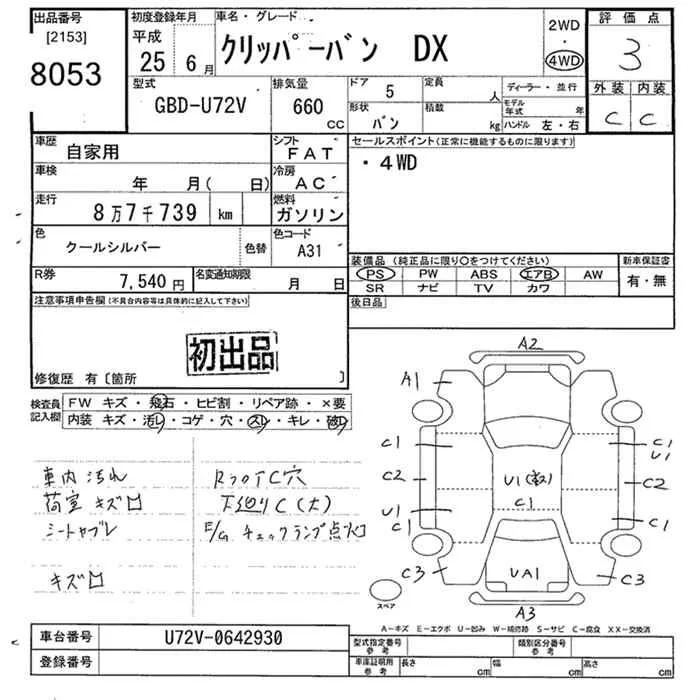 出品番号 初度登録年月 車名・グレード 2WD 評価点
[2153] 平成 クリッパーバン DX ・
8053 25 6月 4WD 3
型式 排気量 ドア 5 定員 人 ディーラー・並行 外装 内装
GBD-U72V 660 CC 形状 バン 積載 kg モデル年式 年 C C
ハンドル 左・右
車歴 自家用 シフト FAT セールスポイント(正常に機能するものに限ります)
車検 年 月( 日) 冷房 AC ・4WD
走行 8万7千739 km 燃料 ガソリン
色 クールシルバー 色替 色コード A31
装備品 (純正品に限り○をつけてください) 新車保証書
PS PW ABS エアB AW 有・無
R券 7,540円 名変通知期限 月 日 SR ナビ TV カワ
注意事項申告欄(不具合内容等は具体的に記入して下さい) 後日品
初出品
修復歴 有〔箇所 〕
検査員記入欄 FW キズ・飛石・ヒビ割・リペア跡・×要
内装 キズ・汚レ・コゲ・穴・スレ・キレ・破レ
車内 汚れ RフロTC穴
荷室 キズロ 下廻りC(大)
シートヤブレ E/G チェックランプ点灯
キズロ
A2
A1
C1 C1
U1
C2 U1 C2
U1 C1
C1 C1
C3 UA1 C3
スペア A3
A-キズ E-エクボ U-凹み W-補修跡 S-サビ C-腐食 XX-交換済
車台番号 U72V-0642930 型式指定番号 参考 類別区分番号 参考
登録番号 車庫証明用 参考 長さ cm 幅 cm 高さ cm